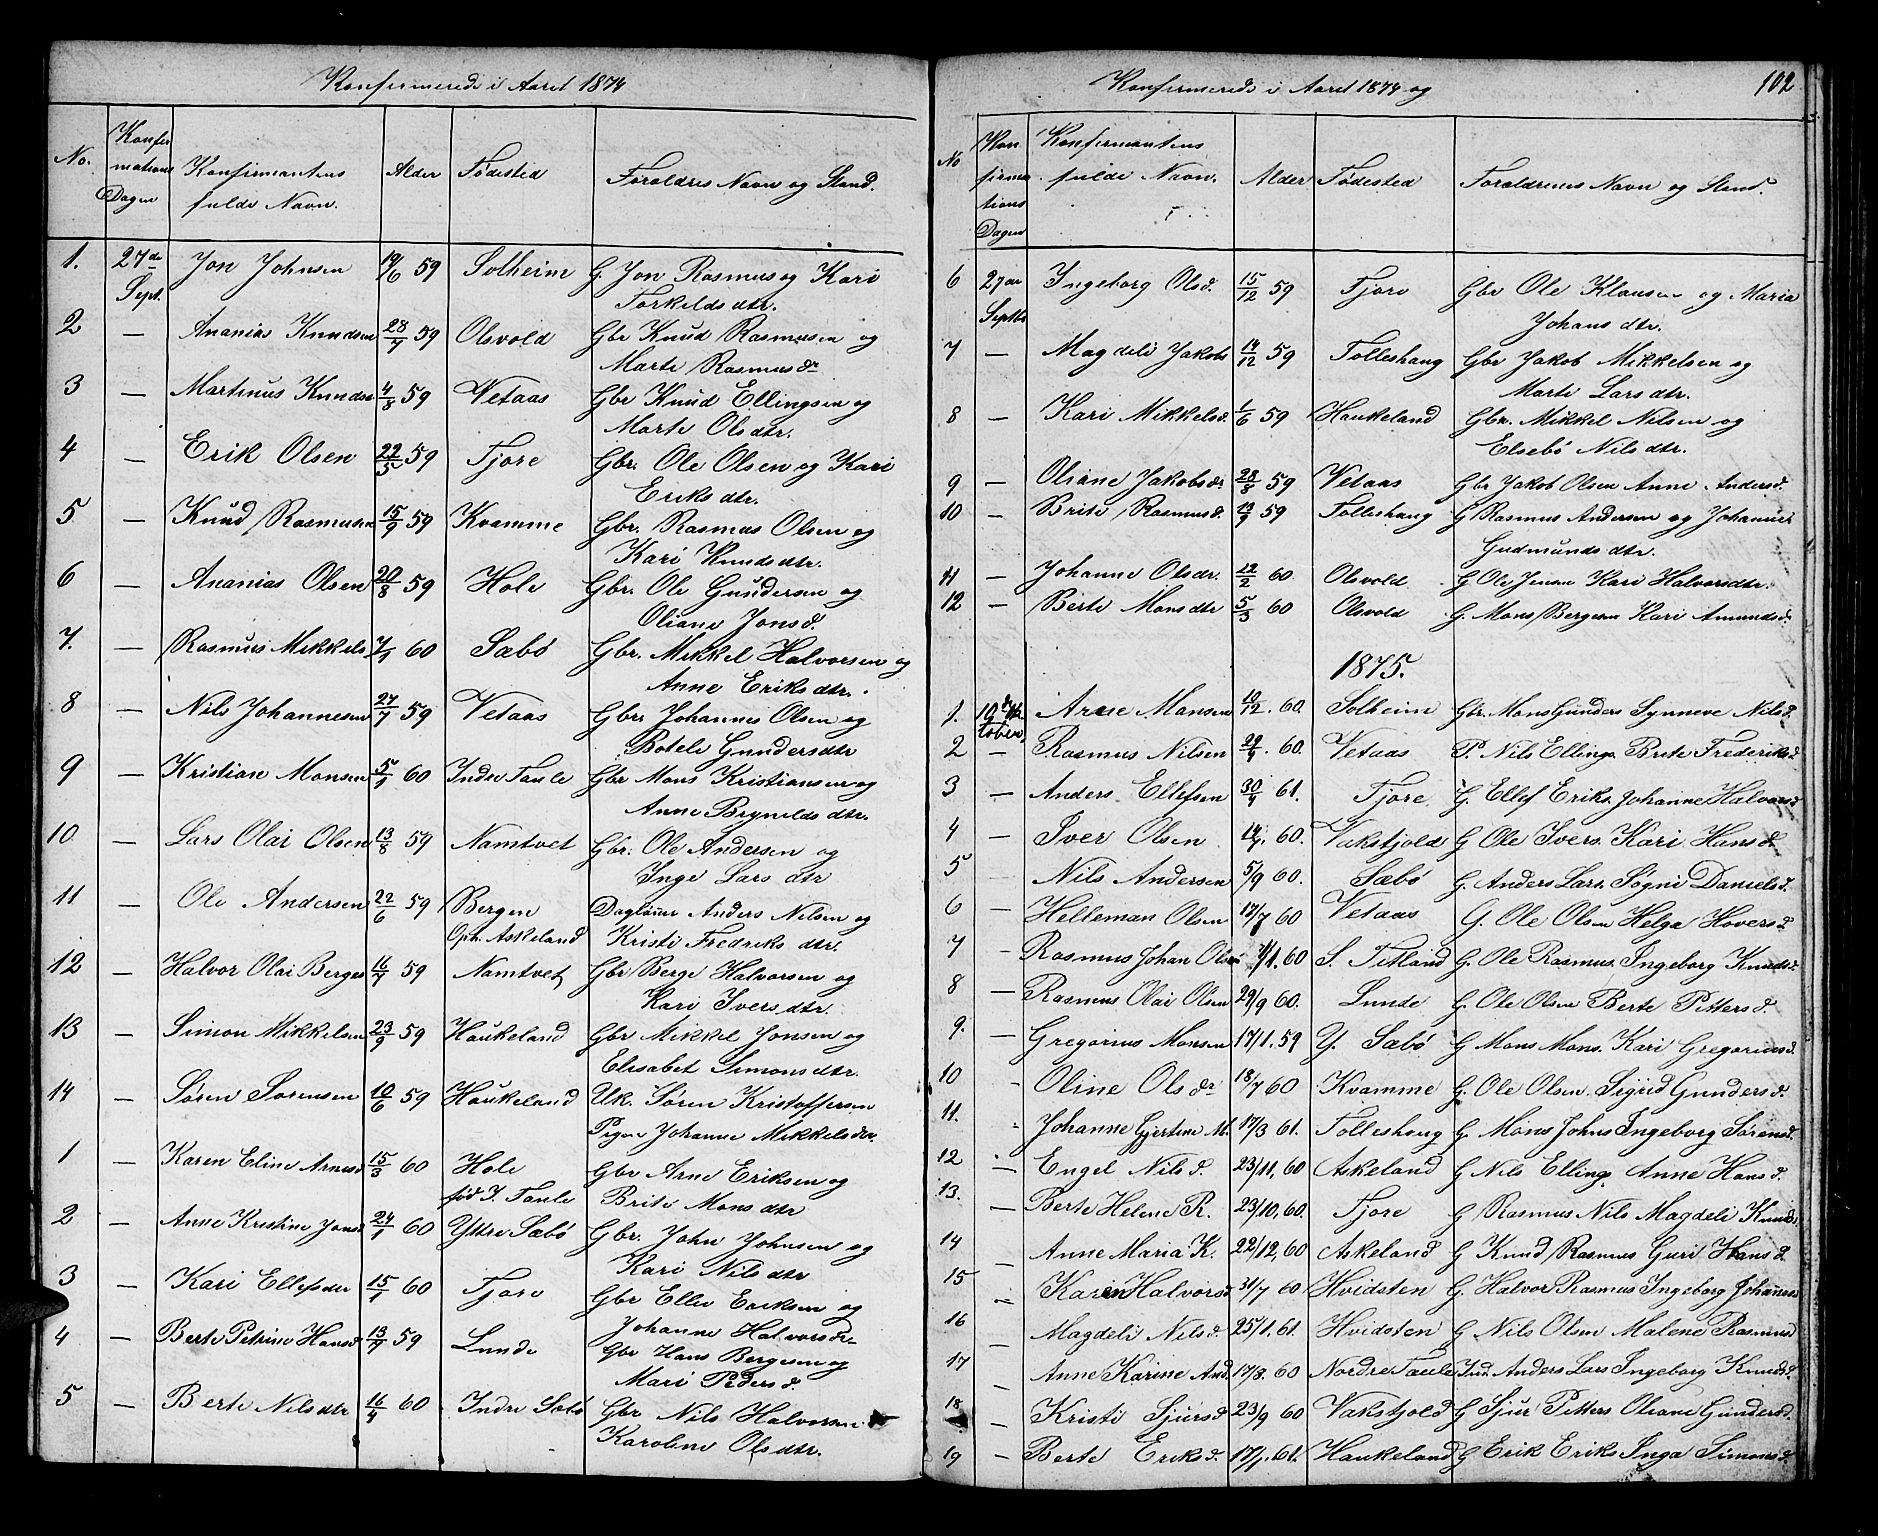 Konfirmerede i Aaret 1874
No. Konfirmations Dagen Konfirmantens fulde Navn. Alder Fødested Forældres Navn og Stand.
1. 27de Sept. Jon Johnsen 19/6 59 Solheim G. Jon Rasmus og Kari
Torkeldsdtr.
2 — Ananias Knudsen 28/7 59 Olsvold Gbr Knud Rasmusen og
Marte Rasmusdr
3 — Martinus Knudse 4/8 59 Vetaas Gbr Knud Ellingsen og
Marte Olsdtr.
4 — Erik Olsen 22/5 59 Fjore Gbr. Ole Olsen og Kari
Eriksdtr.
5 — Knud Rasmusen 15/9 59 Kvamme Gbr. Rasmus Olsen og
Kari Knudsdtr.
6 — Ananias Olsen 20/8 59 Hole Gbr. Ole Gundersen og
Oliane Jonsd.
7. — Rasmus Mikkels 7/1 60 Sæbø Gbr. Mikkel Halvorsen og
Anne Eriksdtr.
8 — Nils Johannesen 27/7 59 Vetaas Gbr Johannes Olsen og
Botele Gundersdtr
9 — Kristian Monsen 5/1 60 Indre Taule Gbr Mons Kristiansen og
Anne Brynildsdtr.
10. — Lars Olai Olsen 13/8 59 Namtvet Gbr. Ole Andersen og
Inge Larsdtr
11 — Ole Andersen 22/6 59 Bergen Daglönner Anders Nilsen og
Oph. Askeland Kristi Fredriksdtr.
12 — Halvor Olai Berges 16/7 59 Namtvet Gbr Berge Halvorsen og
Kari Iversdtr.
13 — Simon Mikkelsen 23/9 59 Haukeland Gbr Mikkel Jonsen og
Elisabet Simonsdtr.
14 — Søren Sørensen 10/6 59 Haukeland Uk. Søren Kristoffersen
Pigen Johanne Mikkelsdtr.
1 — Karen Eline Arnesd 15/3 60 Hole Gbr Arne Eriksen og
fød I. Taule Brite Monsdtr
2 — Anne Kristine Jonsd 24/1 60 Yttre Sæbø Gbr. John Johnsen og
Kari Nilsdtr
3 — Kari Ellefsdtr 15/1 60 Fjore Gbr Ellev Eriksen og
Johanne Halvorsdr
4 — Berte Petrine Hansd 13/7 59 Lunde Gbr Hans Bergesen og
Mari Pedersd.
5 — Berte Nilsdtr 16/4 60 Indre Sæbø Gbr Nils Halvorsen
Karoline Olsdtr.
Konfirmerede i Aaret 1874 og 102
No Konfirmations Dagen Konfirmantens fulde Navn. Alder Fødested Forældrenes Navn og Stand.
6 27de Septbr Ingeborg Olsd. 15/12 59 Fjore Gbr Ole Klausen og Maria
Johansdtr.
7 — Magdeli Jakobs 14/12 59 Tolleshaug Gbr Jakob Mikkelsen og
Marte Larsdtr.
8 — Kari Mikkelsd. 1/6 59 Haukeland Gbr. Mikkel Nilsen og
Elsebø Nilsdtr.
9 — Oliane Jakobsdr 28/8 59 Vetaas Gbr Jakob Olsen Anne Andersd.
10 — Brite Rasmusd. 13/9 59 Tolleshaug G Rasmus Andersen og Johanne
Gudmundsdtr.
11 — Johanne Olsdr. 22/2 60 Olsvold G Ole Jensen Kari Halvorsdtr.
12 — Berte Monsdtr 5/3 60 Olsvold G. Mons Bergesen Kari Amundsd.
1875.
1. 10de Oktober Arne Monsen 10/12. 60. Solheim Gbr. Mons Gunders Synneve Nilsd.
2 — Rasmus Nilsen 29/4. 60. Vetaas P. Nils Ellings. Brite Frederiksd
3 — Anders Ellefsen 30/4 61. Fjore G. Ellef Eriks. Johanne Halvorsd
4 — Iver Olsen 60. Vakstjold G Ole Ivers. Kari Hansd.
5 — Nils Andersen 5/9 60. Sæbø G. Anders Lars. Søgni Danielsd.
6 — Helleman Olsen 17/7 60 Vetaas G. Ole Olsen Helga Hoversd
7 — Rasmus Johan Olsen 7/1. 60 S. Titland G. Ole Rasmus. Ingeborg Knudsd.
8 — Rasmus Olai Olsen 29/9 60. Lunde G. Ole Olsen Berte Pittersd.
9. — Gregorius Monsen 17/1. 59 Y. Sæbø G Mons Mons. Kari Gregoriusd.
10 — Oline Olsdr 18/7 60 Kvamme G. Ole Olsen. Sigrid Gundersd.
11. Johanne Gjertine M. 17/3 61. Tolleshaug G. Mons Johns Ingeborg Sørensd.
12 — Engel Nilsd. 23/11. 60 Askeland G Nils Ellings Anne Hansd.
13. — Berte Helene R. 23/10. 60. Fjore G Rasmus Nils Magdeli Knuds
14 — Anne Maria K. 22/12. 60 Askeland G Knud Rasmus Guri Hansd.
15 — Karen Halvorsd 31/7 60 Hvidsten G. Halvor Rasmus Ingeborg Johannes
16 — Magdeli Nilsd. 25/1. 61. Hvidsten G Nils Olsen Malene Rasmusd
17 — Anne Karine And. 17/8. 60 Nordre Taule Ind. Anders Lars Ingeborg Knudsd.
18 — Kristi Sjursd 23/9 60 Vakstjold G Sjur Pitters Oliane Gundersd.
19 — Berte Eriksd. 17/1. 61. Haukeland G Erik Eriks Inga Simonsd.